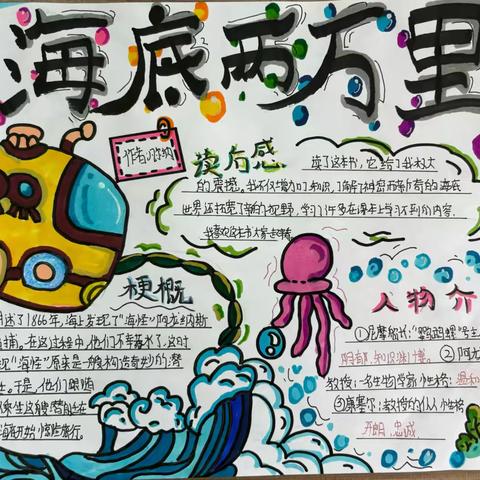 海底两万里
作者:凡尔纳
读后感
读了这本书,它给了我极大
的震撼。我不仅增加了知识,了解了神秘而新奇的海底
世界还拓宽了新的视野,学习了许多在课本上学习不到的内容.
我喜欢这本书大家去看
梗概
述了1866年,海上发现了"海怪"阿龙纳斯
捕。在这过程中,他们不幸落水了,这时
现"海怪"原来是一艘构造奇妙的潜
。于是,他们跟随
乘坐这艘潜艇在
海开始了惊险旅行。
人物介
①尼摩船长:"鹦鹉螺"号主
阴郁,知识渊博。
②阿龙
教授:一名生物学家,性格:温和
③康塞尔:教授的仆人,性格
开朗,忠诚